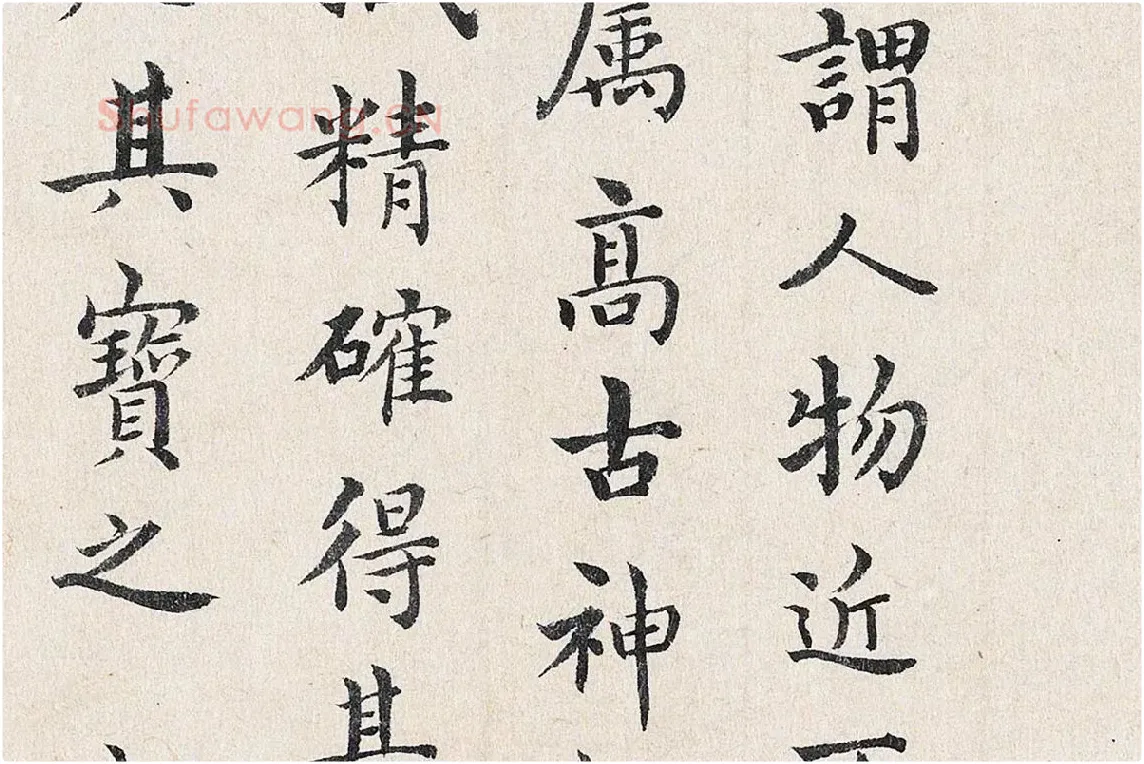 謂人物近
属髙古神
精確得其
其寳之
Shufawang.CN